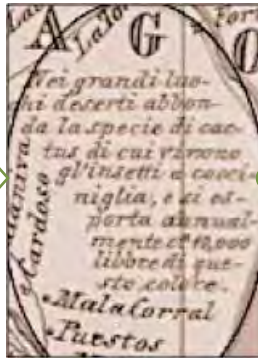 A G
Nei grandi luo-
hi deserti abbon-
da la specie di cac-
tus di cui vivono
gl'insetti a cocci-
niglia, e si es-
porta annual-
mente ct 10,000
libbre di que-
sto colore.
Mala Corral
Puestos
Mardoso